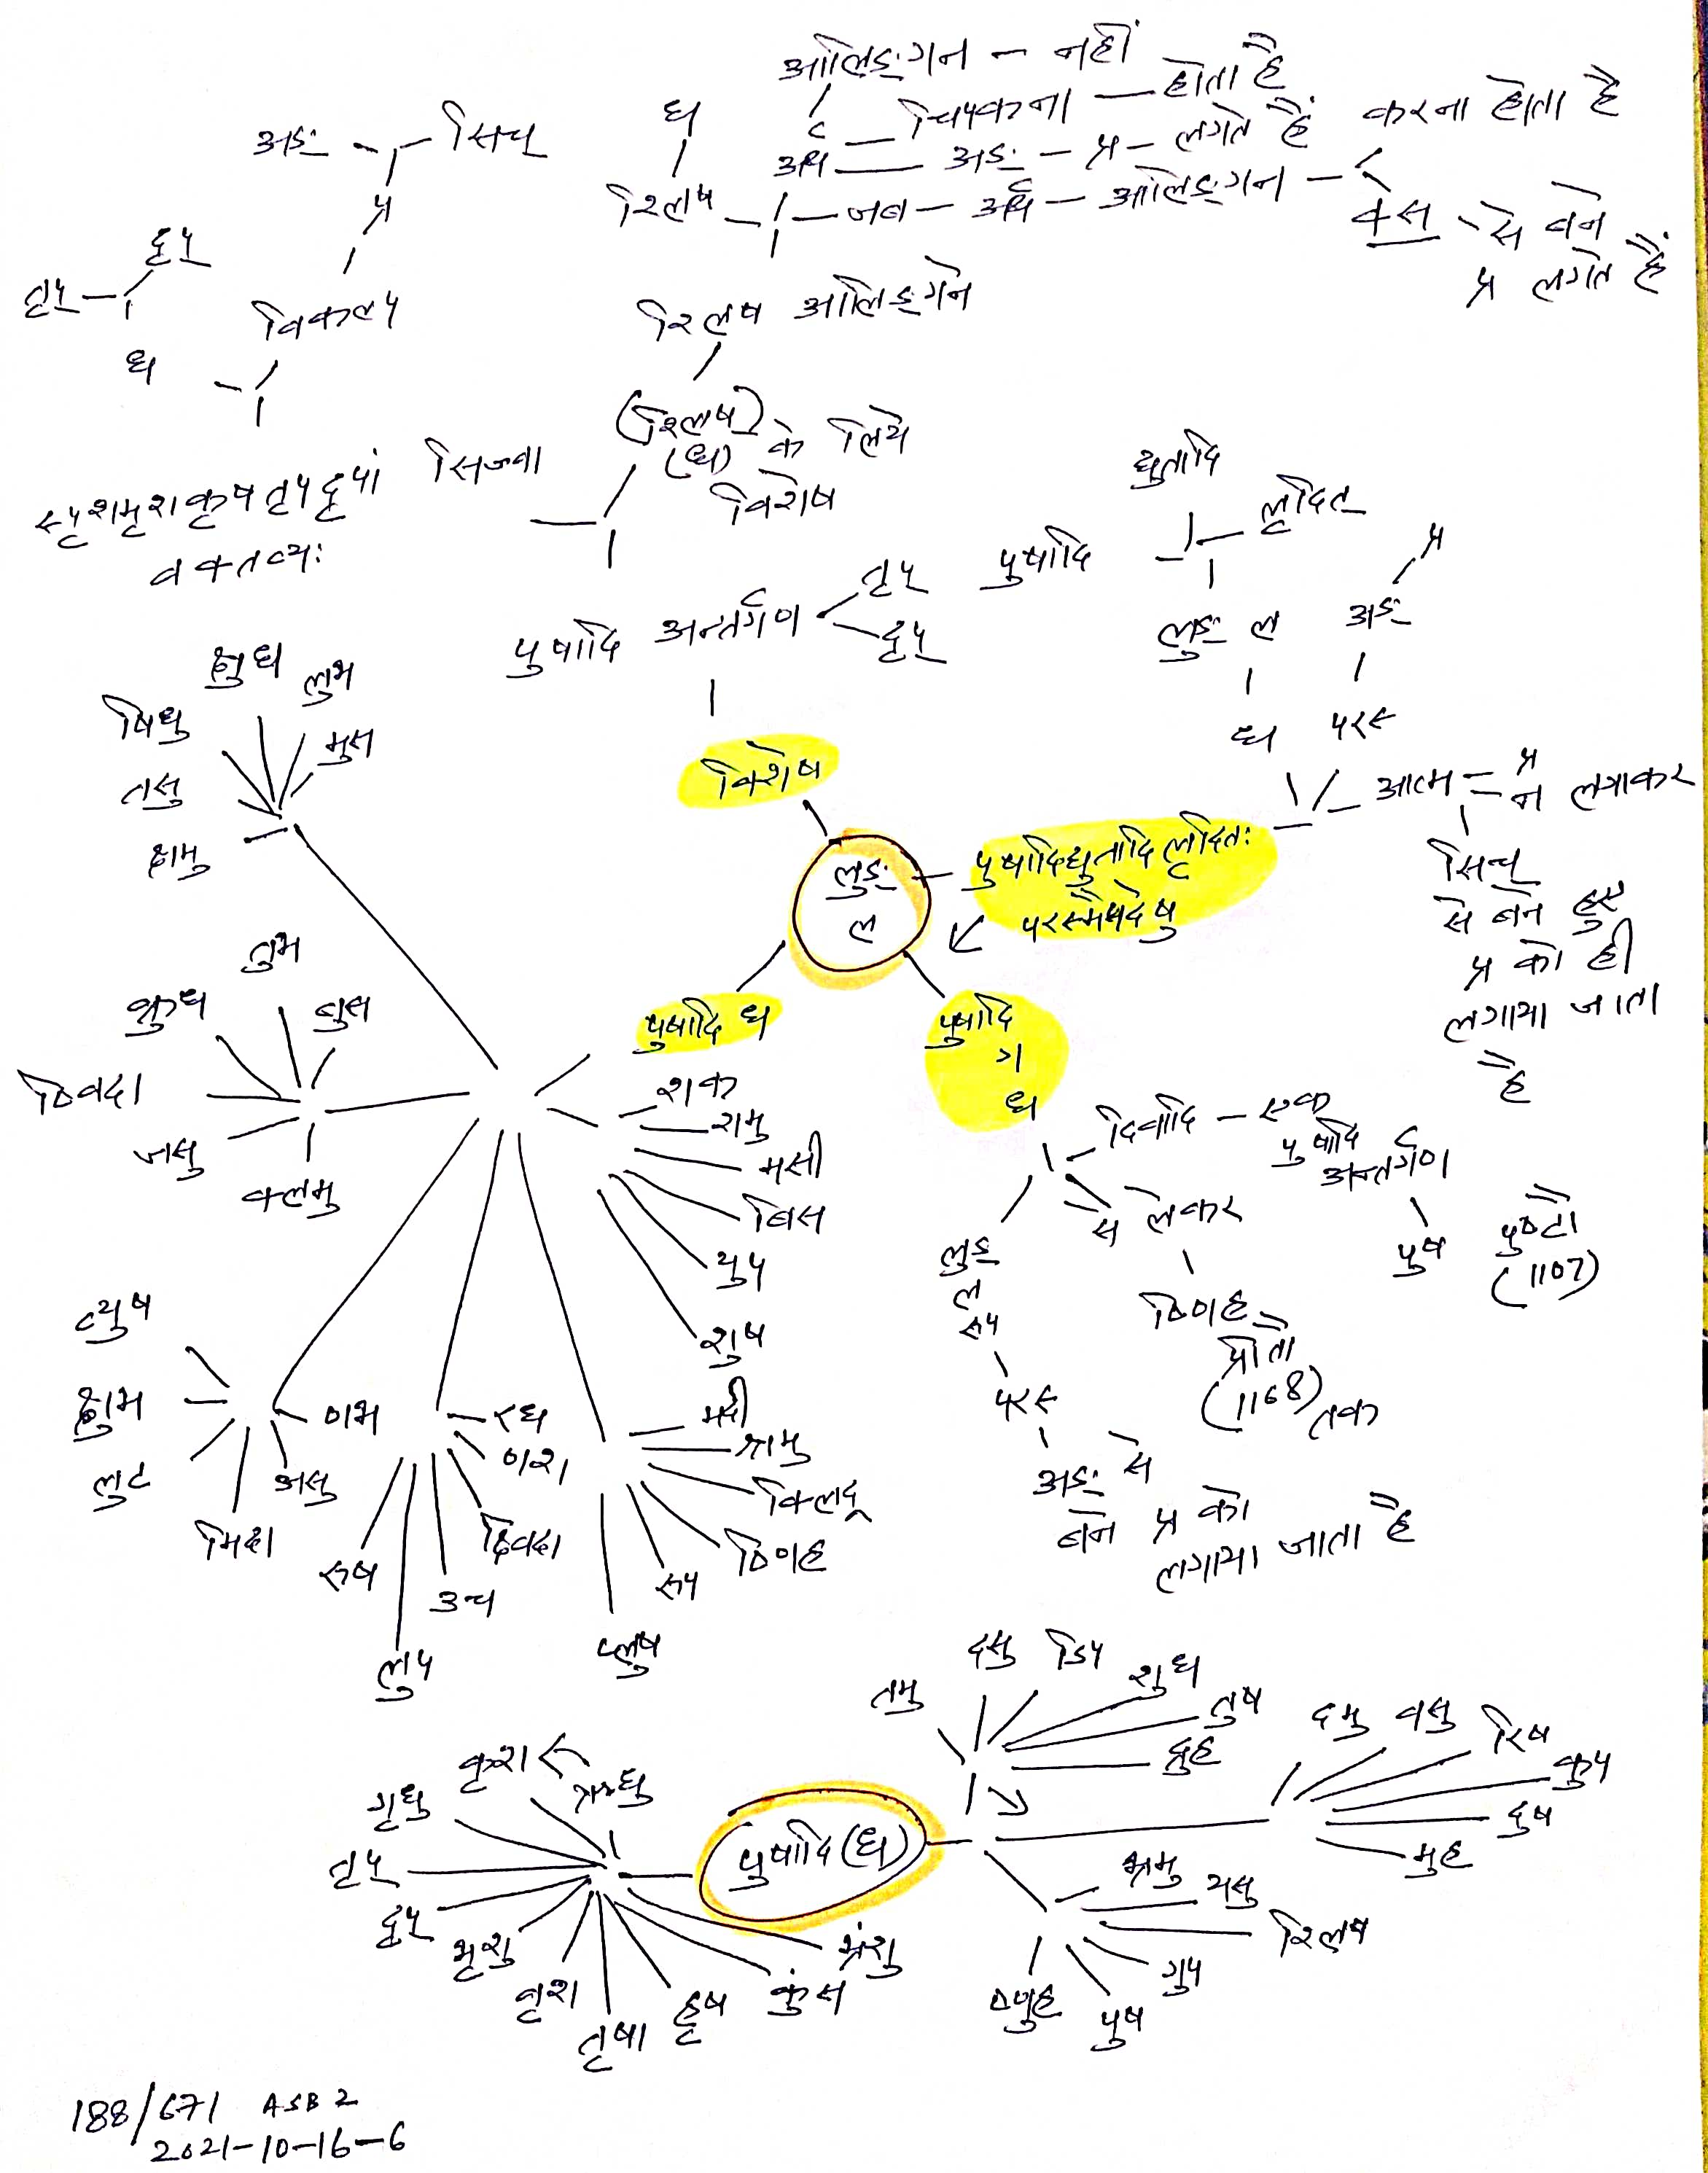 आलिङ्गन - नहीं
चिपकना - होता है
अर्थ - अङ् - प्र - लगते हैं
करना होता है
अङ् - सिच्
प्र
ध
श्लिष - जब - अर्थ - आलिङ्गन -
क्स - से बने
प्र लगते हैं
दृप्
तृप्
ध
विकल्प
श्लिष आलिङ्गने
(श्लिष)
(ध) के लिये
विशेष
स्पृशमृशकृषतृपदृपां सिज्वा
वक्तव्यः
पुषादि अन्तर्गण
तृप्
दृप्
द्युतादि
पुषादि
लृदित्
लुङ् ल
ध
प्र
अङ्
परस्
विशेष
लुङ्
ल
पुषादिद्युतादिलृदितः
परस्मैपदेषु
आत्म = प्र
न लगाकर
सिच्
से बने हुए
प्र को ही
लगाया जाता
है
क्षुध
लुभ
षिधु
मुस
तसु
क्षमु
पुषादि ध
पुषादि
ग
ध
तुभ
क्रुध
वुस
ष्विदा
जसु
क्लमु
शक
शमु
मसी
बिस
युप
शुष
दिवादि - एक
पुषादि
अन्तर्गण
पुष पुष्टौ
(1107)
से लेकर
ष्णिह
प्रीतौ
(1168) तक
लुङ्
ल
रूप
परस्
अङ् से
बने प्र को
लगाया जाता है
व्युष
क्षुभ
लुट
मिदा
असु
णभ
रध
णश
क्ष्विदा
उच
रुष
लुप
मदी
श्रमु
क्लिदू
ष्णिह
रुप
प्लुष
तमु
दसु
डिप
शुध
तुष
द्रुह
दमु
वसु
रिष
कुप
दुष
मुह
भ्रमु
यसु
श्लिष
गुप
पुष
ष्णुह
पुषादि (ध)
कृश
ऋधु
गृधु
तृप्
दृप्
भृशु
वृश
तृषा
हृष
कुंस
भ्रंशु
188/671 ASB 2
2021-10-16-6